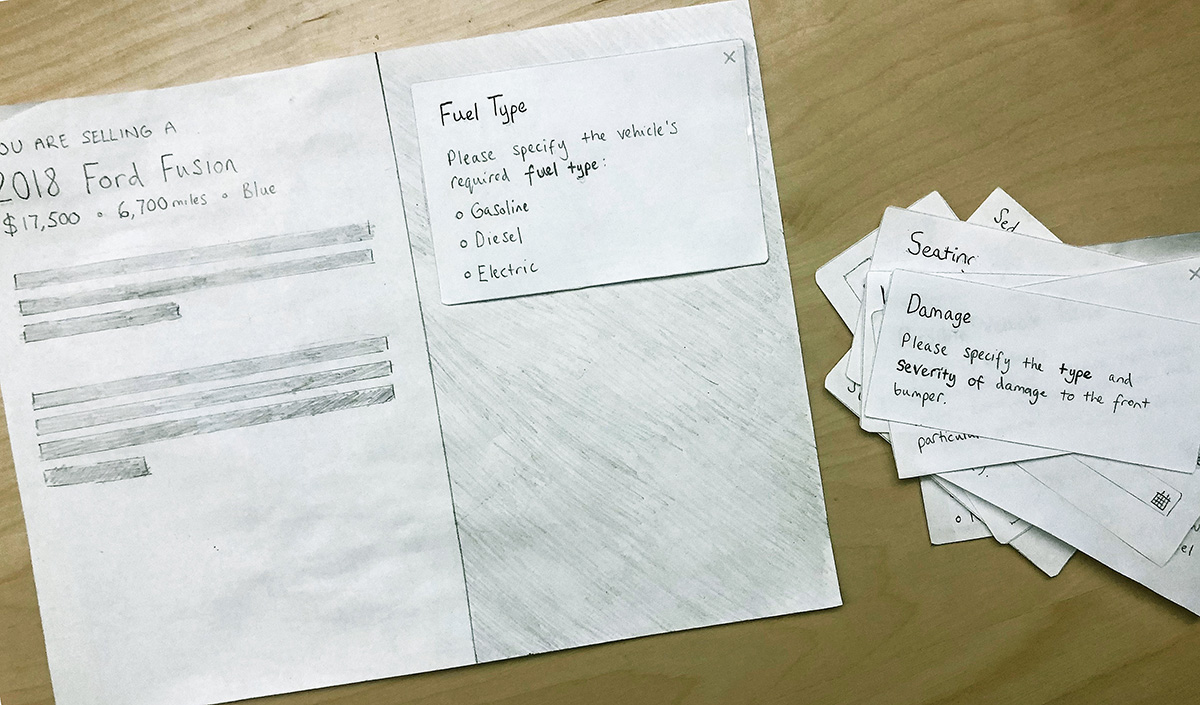 OU ARE SELLING A
2018 Ford Fusion
$17,500 • 6,700 miles • Blue
Fuel Type
Please specify the vehicle's
required fuel type:
Gasoline
Diesel
Electric
Sed
Seating
Damage
Please specify the type and
severity of damage to the front
bumper.
particular